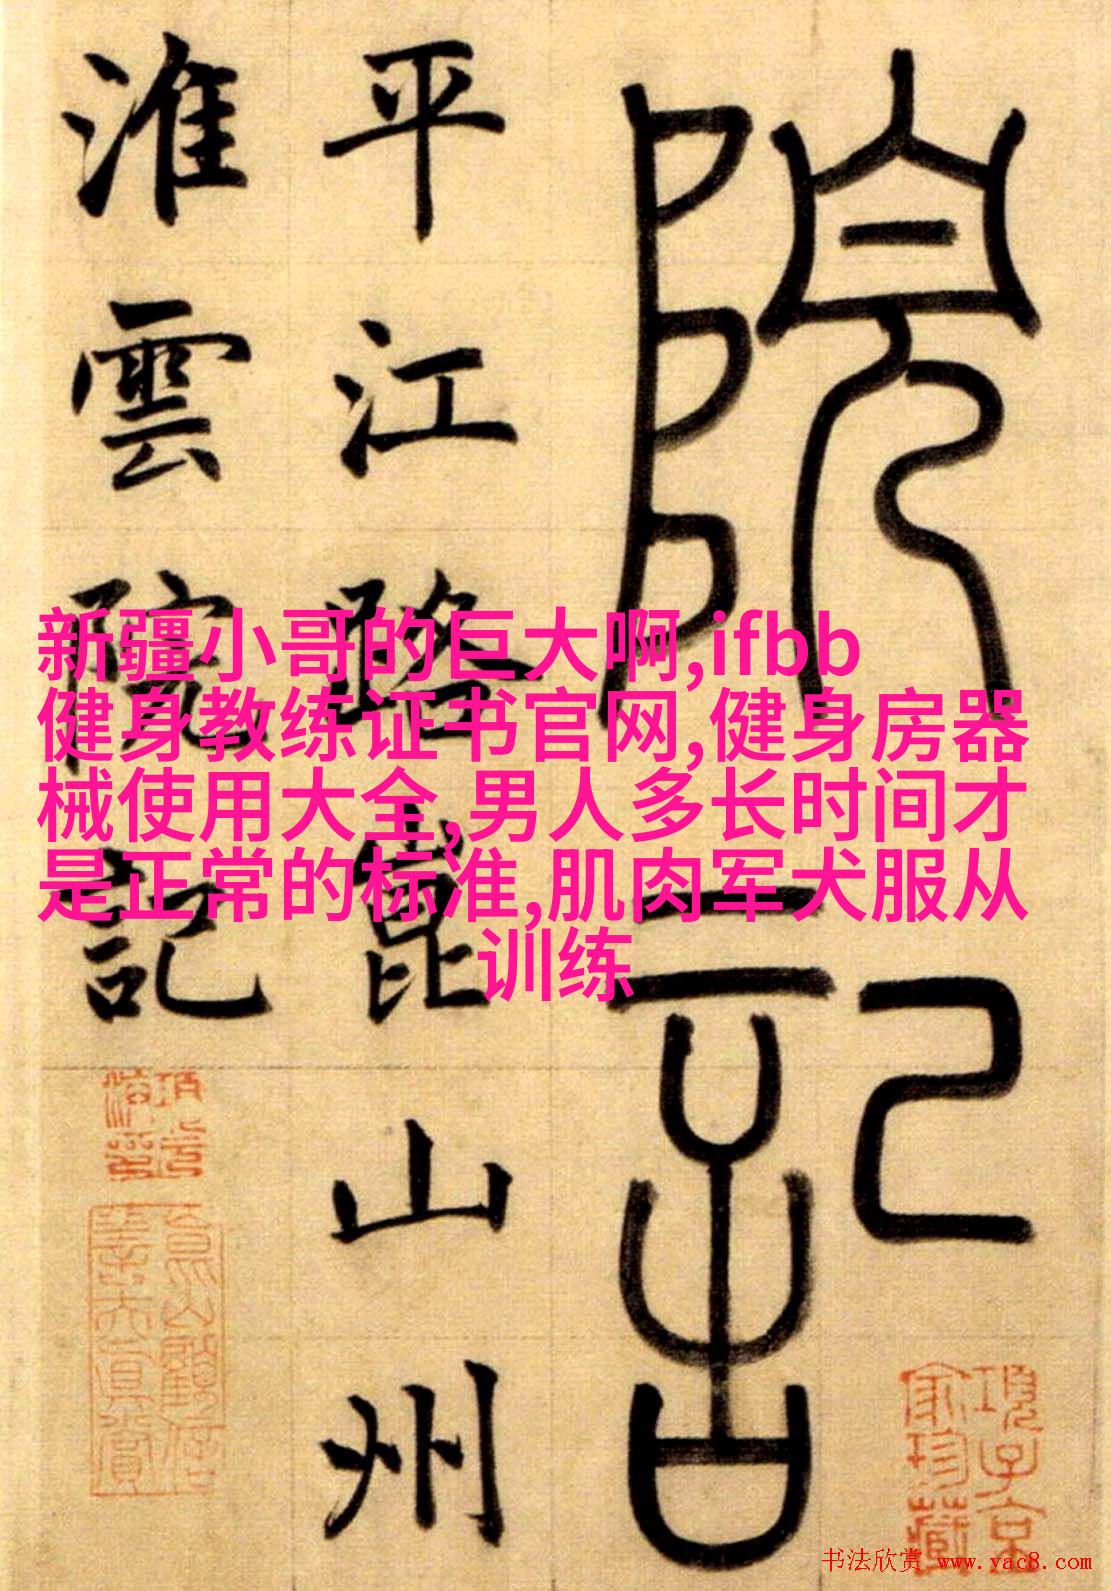 院記
平江路崑山州
淮雲院記
新疆小哥的巨大啊,ifbb
健身教练证书官网,健身房器
械使用大全,男人多长时间才
是正常的标准,肌肉军犬服从
训练
項子京
書法欣赏 www.yac8.com